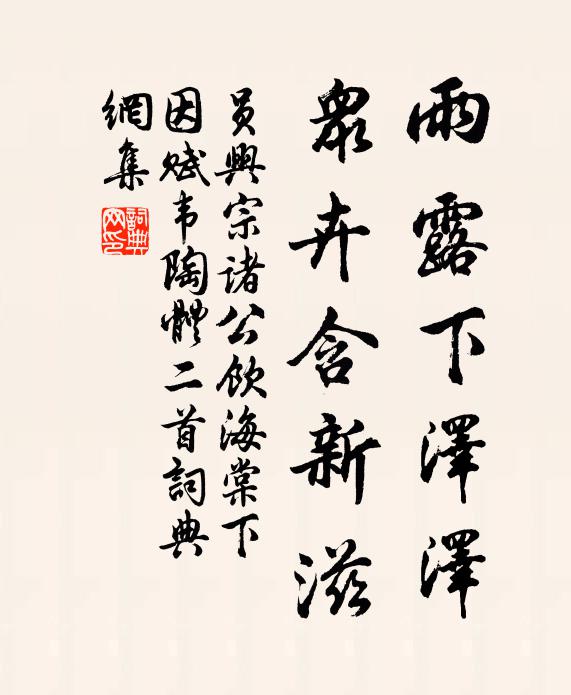 雨露下澤澤
衆卉含新滋
员興宗諸公飲海棠下
因赋韦陶體二首詞典
網集
詞典网印